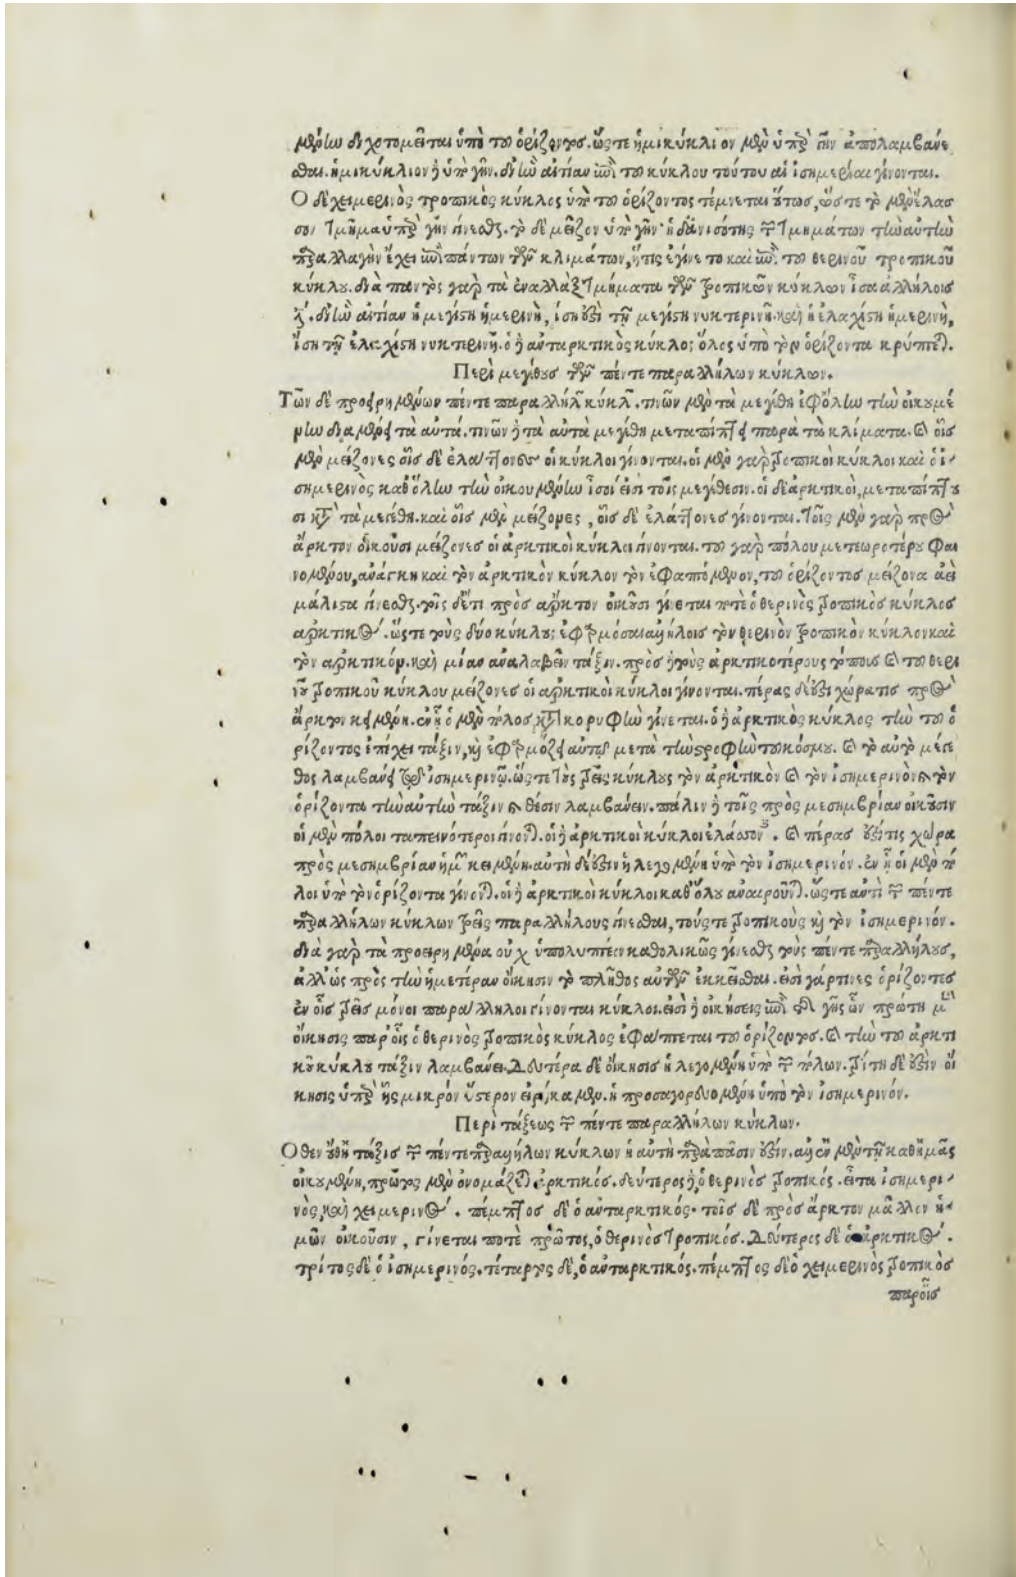 μένην διχοτομεῖται ὑπὸ τοῦ ὁρίζοντος. ὥστε ἡμικύκλιον μὲν ὑπὲρ γῆν ἀπολαμβάνε
σθαι. ἡμικύκλιον δὲ ὑπὸ γῆν. δι' ἣν αἰτίαν ἐπὶ τοῦ κύκλου τούτου αἱ ἰσημερίαι γίνονται.
Ο δὲ χειμερινὸς τροπικὸς κύκλος ὑπὸ τοῦ ὁρίζοντος τέμνεται οὕτως, ὥστε τὸ μὲν ἔλασ
σον τμῆμα ὑπὲρ γῆν γίνεσθαι. τὸ δὲ μεῖζον ὑπὸ γῆν· ἡ δ' ἀνισότης τῶν τμημάτων τὴν αὐτὴν
παραλλαγὴν ἔχει ἐπὶ πάντων τῶν κλιμάτων, ἥτις ἐγίνετο καὶ ἐπὶ τοῦ θερινοῦ τροπικοῦ
κύκλου. διὰ παντὸς γὰρ τὰ ἐναλλὰξ τμήματα τῶν τροπικῶν κύκλων ἶσα ἀλλήλοις
ἐστί. δι' ἣν αἰτίαν ἡ μεγίστη ἡμερινὴ, ἴση ἐστὶ τῇ μεγίστῃ νυκτερινῇ. καὶ ἡ ἐλαχίστη ἡμερινὴ,
ἴση τῇ ἐλαχίστῃ νυκτερινῇ. ὁ δὲ ἀνταρκτικὸς κύκλος ὅλος ὑπὸ τὸν ὁρίζοντα κρύπτεται.
Περὶ μεγέθους τῶν πέντε παραλλήλων κύκλων.
Τῶν δὲ προειρημένων πέντε παραλλήλων κύκλων. τινῶν μὲν τὰ μεγέθη ἐφ' ὅλην τὴν οἰκουμέ
νην διαμένει τὰ αὐτά. τινῶν δὲ τὰ αὐτὰ μεγέθη μεταπίπτει παρὰ τὰ κλίματα. καὶ οἷς
μὲν μείζονες οἷς δὲ ἐλάττονες οἱ κύκλοι γίνονται. οἱ μὲν γὰρ τροπικοὶ κύκλοι καὶ ὁ ἰ-
σημερινὸς καθ' ὅλην τὴν οἰκουμένην ἴσοί εἰσι τοῖς μεγέθεσιν. οἱ δὲ ἀρκτικοὶ, μεταπίπτου
σι κατὰ τὰ μεγέθη. καὶ οἷς μὲν μείζονες, οἷς δὲ ἐλάττονες γίνονται. τοῖς μὲν γὰρ πρὸς
ἄρκτον οἰκοῦσι μείζονες οἱ ἀρκτικοὶ κύκλοι γίνονται. τοῦ γὰρ πόλου μετεωροτέρου φαι
νομένου, ἀνάγκη καὶ τὸν ἀρκτικὸν κύκλον τὸν ἐφαπτόμενον, τοῦ ὁρίζοντος μείζονα ἀεὶ
μάλιστα γίνεσθαι. τοῖς δ' ἔτι πρὸς ἄρκτον οἰκοῦσι γίνεταί ποτε ὁ θερινὸς τροπικὸς κύκλος
ἀρκτικὸς. ὥστε τοὺς δύο κύκλους ἐφαρμόσαι ἀλλήλοις τὸν θερινὸν τροπικὸν κύκλον καὶ
τὸν ἀρκτικόν. καὶ μίαν ἀναλαβεῖν τάξιν. πρὸς δὲ τοὺς ἀρκτικοτέρους τόποις καὶ τοῦ θερι
νοῦ τροπικοῦ κύκλου μείζονες οἱ ἀρκτικοὶ κύκλοι γίνονται. πέρας δ' ἐστὶ χώρα τις πρὸς
ἄρκτον κειμένη. ἐν ᾗ ὁ μὲν πόλος κατὰ κορυφὴν γίνεται. ὁ δὲ ἀρκτικὸς κύκλος τὴν τοῦ ὁ
ρίζοντος ἐπέχει τάξιν, καὶ ἐφαρμόζει αὐτῷ μετὰ τὴν στροφὴν τοῦ κόσμου. καὶ τὸ αὐτὸ μέγε
θος λαμβάνει τῷ ἰσημερινῷ. ὥστε τοὺς τρεῖς κύκλους τὸν ἀρκτικὸν καὶ τὸν ἰσημερινὸν καὶ τὸν
ὁρίζοντα τὴν αὐτὴν τάξιν καὶ θέσιν λαμβάνειν. πάλιν δὲ τοῖς πρὸς μεσημβρίαν οἰκοῦσιν
οἱ μὲν πόλοι ταπεινότεροι γίνονται. οἱ δὲ ἀρκτικοὶ κύκλοι ἐλάσσονες. καὶ πέρας ἐστί τις χώρα
πρὸς μεσημβρίαν ἡμῖν κειμένη. αὐτὴ δ' ἐστὶν ἡ λεγομένη ὑπὸ τὸν ἰσημερινόν. ἐν ᾗ οἱ μὲν πό
λοι ὑπὸ τὸν ὁρίζοντα γίνονται. οἱ δὲ ἀρκτικοὶ κύκλοι καθ' ὅλου ἀναιροῦνται. ὥστε ἀντὶ τῶν πέντε
παραλλήλων κύκλων τρεῖς παραλλήλους γίνεσθαι, τούς τε τροπικοὺς καὶ τὸν ἰσημερινόν.
διὰ γὰρ τὰ προειρημένα οὐχ ὑποληπτέον καθολικῶς γίνεσθαι τοὺς πέντε παραλλήλους,
ἀλλ' ὡς πρὸς τὴν ἡμετέραν οἴκησιν τὸ πλῆθος αὐτῶν ἐκκεῖσθαι. εἰσὶ γάρ τινες ὁρίζοντες
ἐν οἷς τρεῖς μόνοι παράλληλοι γίνονται κύκλοι. εἰσὶ δὲ οἰκήσεις ἐπὶ τῆς γῆς ὧν πρώτη μὲν
οἴκησις παρ' οἷς ὁ θερινὸς τροπικὸς κύκλος ἐφάπτεται τοῦ ὁρίζοντος. καὶ τὴν τοῦ ἀρκτι
κοῦ κύκλου τάξιν λαμβάνει. Δευτέρα δὲ οἴκησις ἡ λεγομένη ὑπὸ τῶν πόλων. τρίτη δὲ ἐστὶν οἴ
κησις ὑπὲρ ἧς μικρὸν ὕστερον εἰρήκαμεν. ἡ προσαγορευομένη ὑπὸ τὸν ἰσημερινόν.
Περὶ τάξεως τῶν πέντε παραλλήλων κύκλων.
Οθεν οὐδὲ ἡ τάξις τῶν πέντε παραλλήλων κύκλων ἡ αὐτὴ παρὰ πᾶσίν ἐστιν. ἀλλ' ἐν μὲν τῇ καθ' ἡμᾶς
οἰκουμένῃ, πρῶτος μὲν ὀνομάζεται ἀρκτικός. δεύτερος δὲ, ὁ θερινὸς τροπικός. εἶτα ἰσημερι-
νὸς, καὶ χειμερινὸς. πέμπτος δὲ ὁ ἀνταρκτικός. τοῖς δὲ πρὸς ἄρκτον μᾶλλον ἡ-
μῶν οἰκοῦσιν, γίνεται ποτὲ πρῶτος, ὁ θερινὸς τροπικός. Δεύτερος δὲ ὁ ἀρκτικὸς.
τρίτος δὲ ὁ ἰσημερινός. τέταρτος δὲ, ὁ ἀνταρκτικός. πέμπτος δὲ ὁ χειμερινὸς τροπικὸς
παρ' οἷς